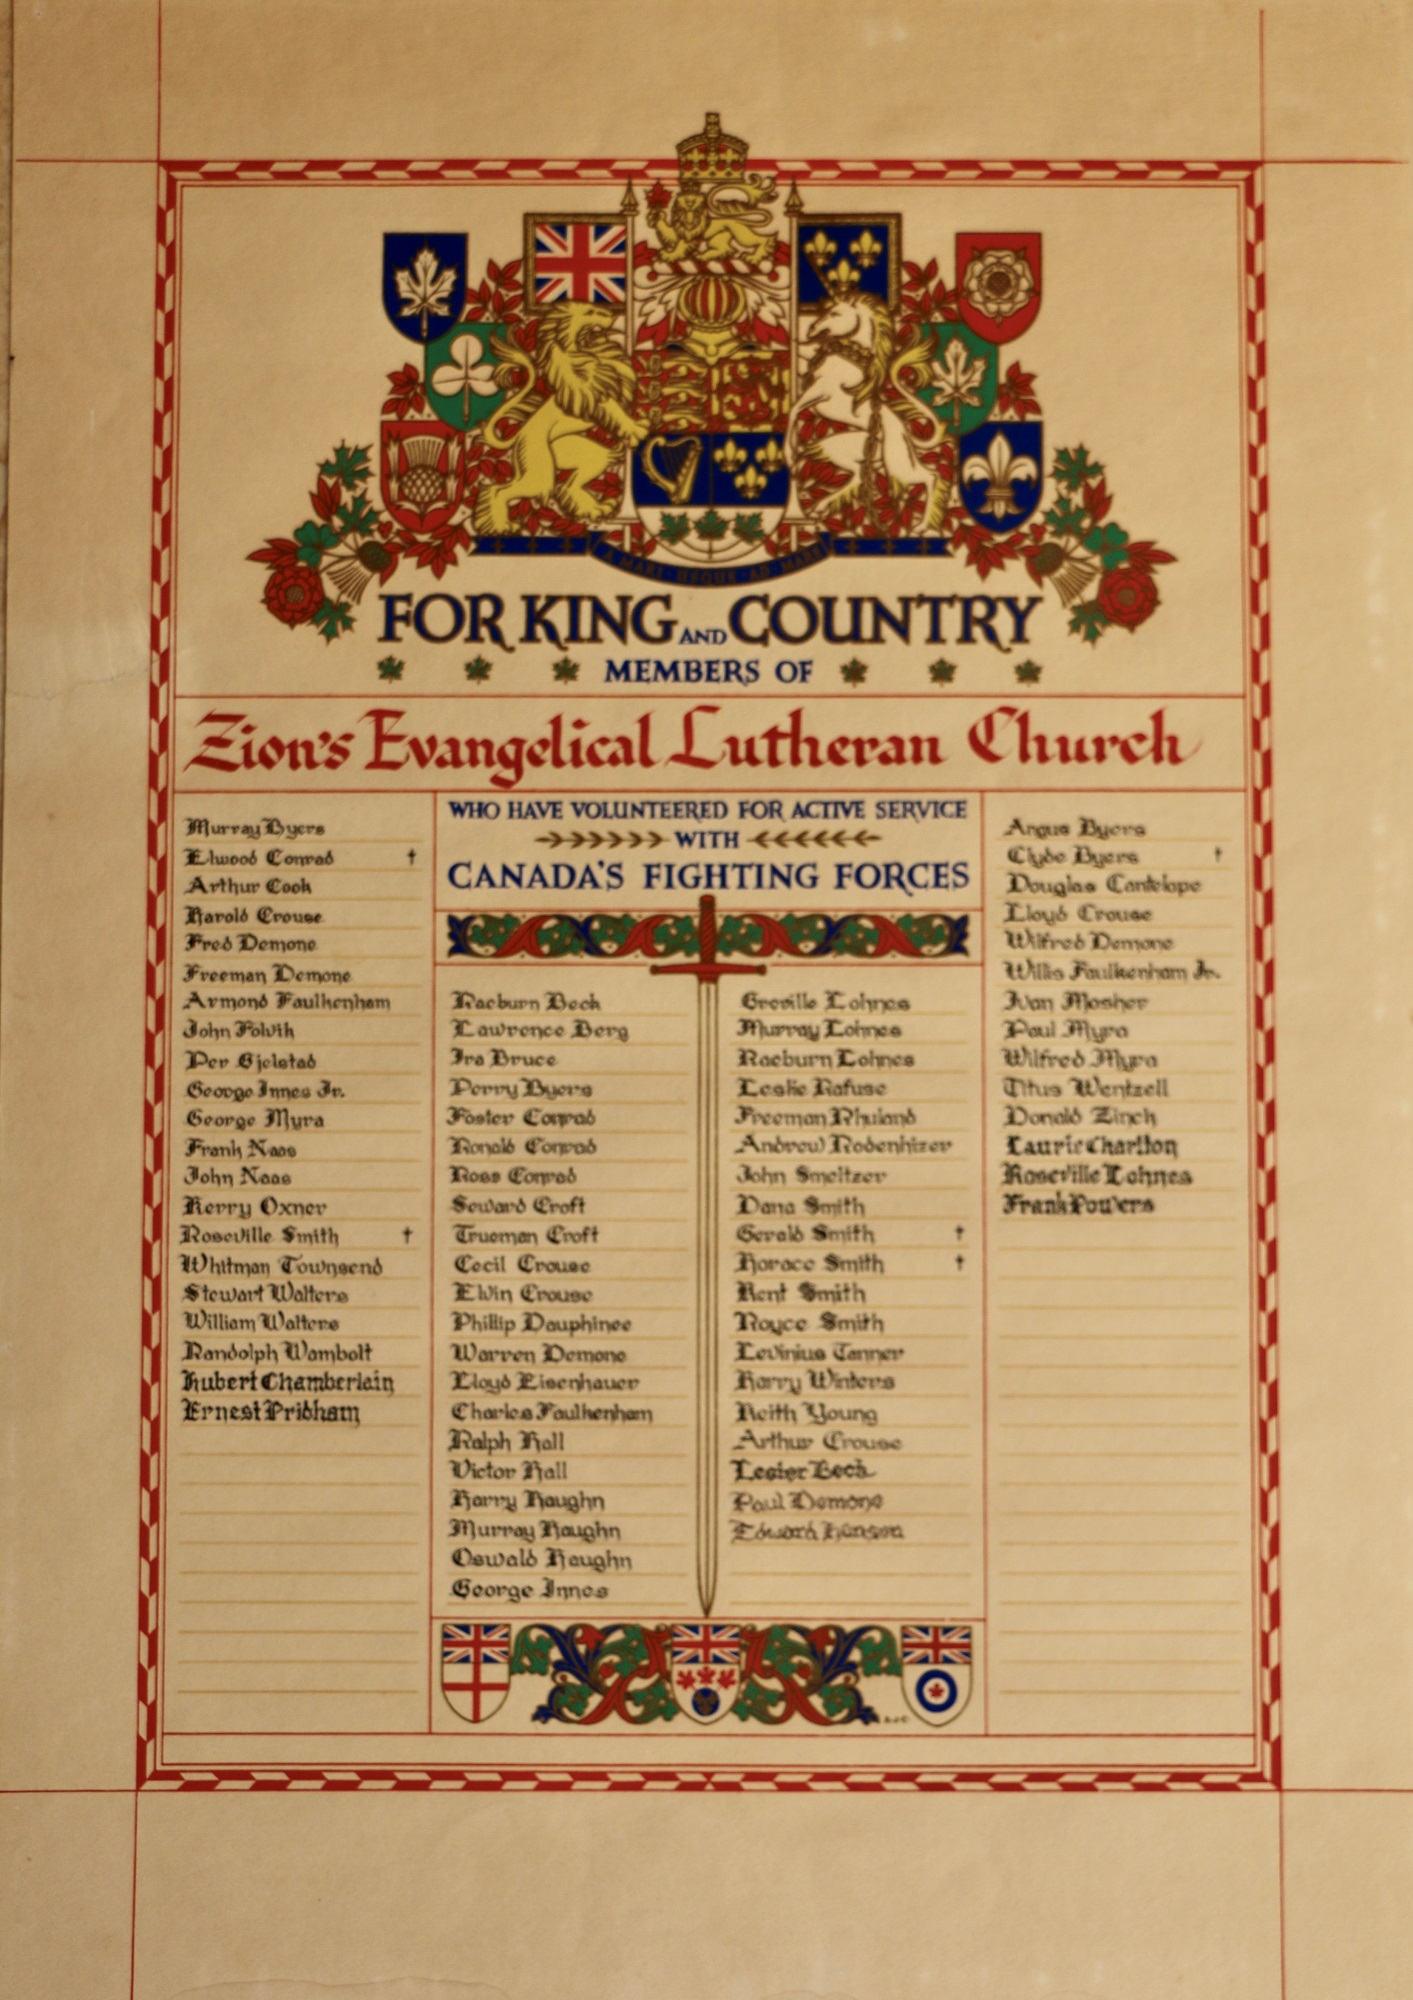 A MARI USQUE AD MARE
FOR KING AND COUNTRY
MEMBERS OF
Zion's Evangelical Lutheran Church
Murray Byers
Elwood Conrad †
Arthur Cook
Harold Crouse
Fred Demone
Freeman Demone
Armond Faulkenham
John Folvik
Per Gjelstad
George Innes Jr.
George Myra
Frank Naas
John Naas
Kerry Oxner
Roseville Smith †
Whitman Townsend
Stewart Walters
William Walters
Randolph Wambolt
Hubert Chamberlain
Ernest Pridham
WHO HAVE VOLUNTEERED FOR ACTIVE SERVICE
WITH
CANADA'S FIGHTING FORCES
Raeburn Beck
Lawrence Berg
Ira Bruce
Perry Byers
Foster Conrad
Ronald Conrad
Ross Conrad
Seward Croft
Trueman Croft
Cecil Crouse
Elvin Crouse
Phillip Dauphinee
Warren Demone
Lloyd Eisenhauer
Charles Faulkenham
Ralph Hall
Victor Hall
Harry Haughn
Murray Haughn
Oswald Haughn
George Innes
Greville Lohnes
Murray Lohnes
Raeburn Lohnes
Leslie Rafuse
Freeman Rhuland
Andrew Rodenhizer
John Smeltzer
Dana Smith
Gerald Smith †
Horace Smith †
Kent Smith
Royce Smith
Levinius Tanner
Harry Winters
Keith Young
Arthur Crouse
Lester Beck
Paul Demone
Edward Hanson
Angus Byers
Clyde Byers †
Douglas Cantelope
Lloyd Crouse
Wilfred Demone
Willis Faulkenham Jr.
Ivan Mosher
Paul Myra
Wilfred Myra
Titus Wentzell
Donald Zinck
Laurie Charlton
Roseville Lohnes
Frank Powers